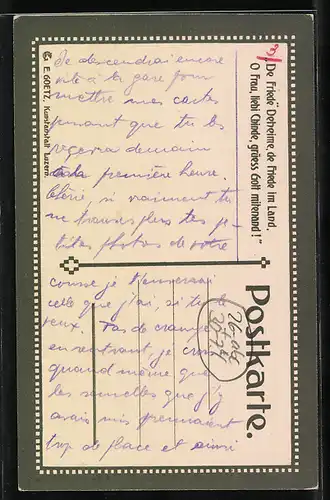 Je descendrai encore
vite à la gare pour
mettre ma carte
pensant que tu les
recevra demain
à la première heure.
Chérie, si vraiment tu
ne trouves plus tes pe-
tites photos de votre
course je t'enverrai
celle que j'ai, si tu
veux. Pas de crampes
en rentrant, je crois
quand même que
les semelles que j'y
avais mis prennaient
trop de place et ainsi
„De Friede Deheime, de Friede im Land,
O Frau, liebi Chinde, grüess Gott mitenand!“
Postkarte.
E. GOETZ, Kunstanstalt Luzern.